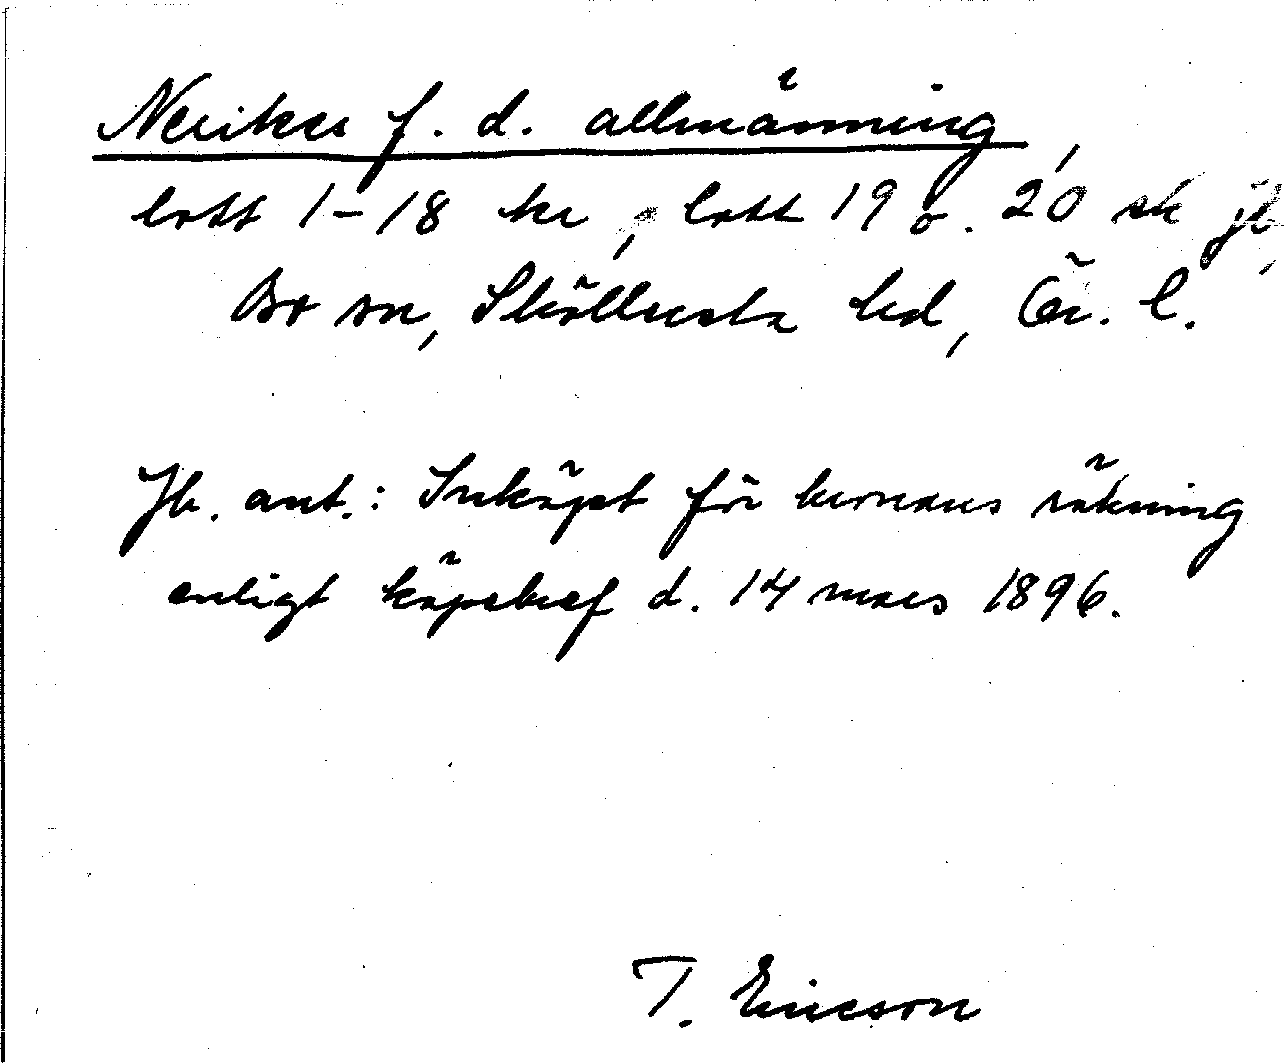 Nerikes f. d. allmänning,
lott 1-18 kr, lott 19 o. 20 sk jb,
Bo sn, Sköllersta hd, Ör. l.
Jb. ant.: Inköpt för kronans räkning
enligt köpebref d. 14 mars 1896.
T. Ericson